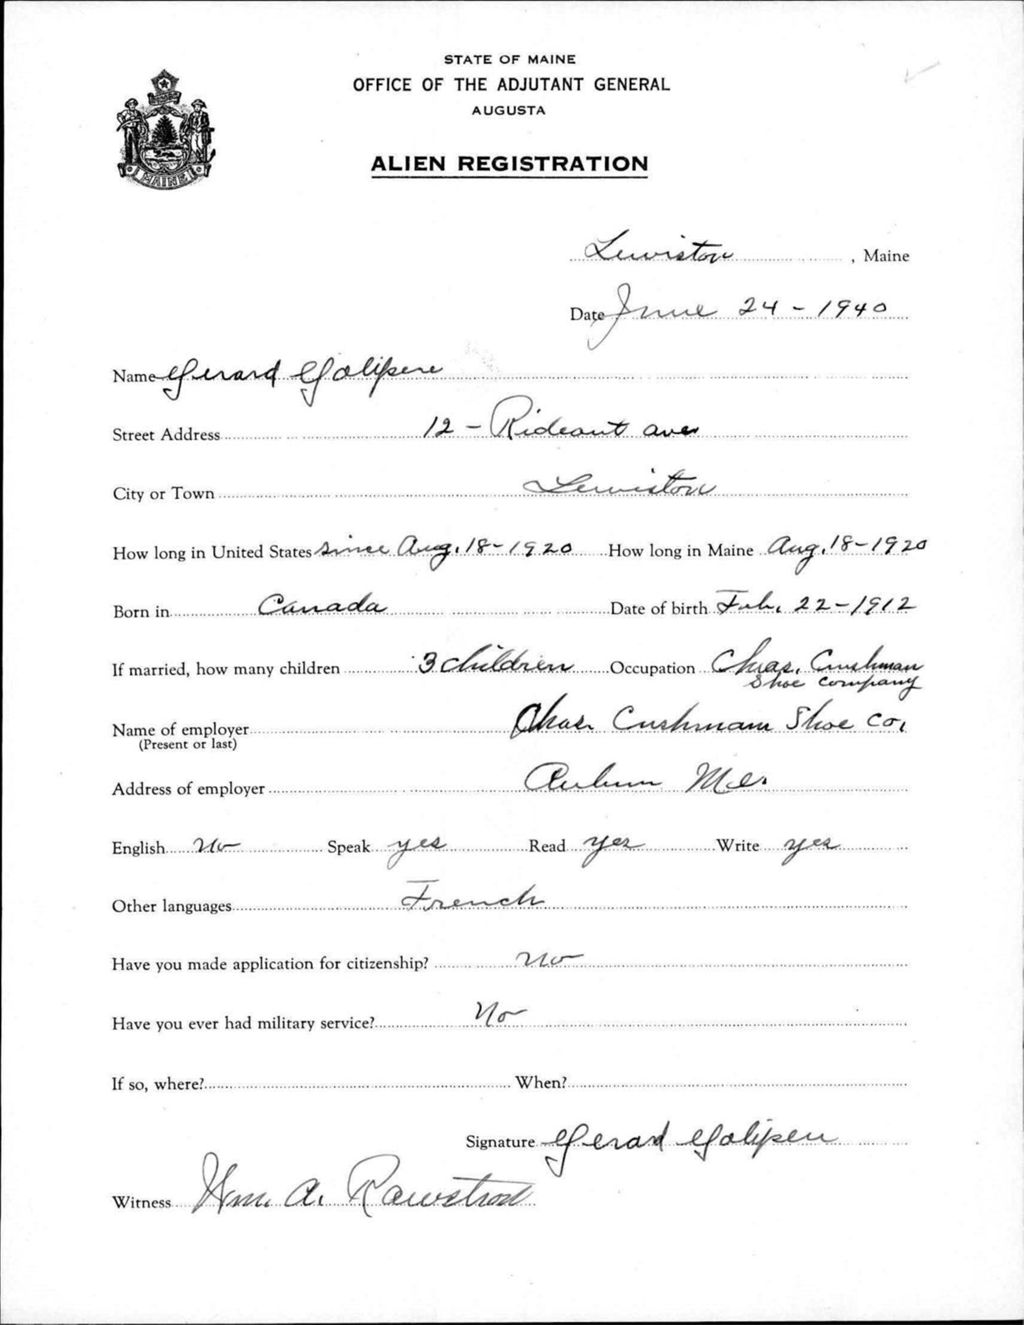 STATE OF MAINE
OFFICE OF THE ADJUTANT GENERAL
AUGUSTA
MAINE
ALIEN REGISTRATION
Lewiston, Maine
Date June 24 - 1940
Name Gerard Galipere
Street Address 12 - Rideout ave
City or Town Lewiston
How long in United States since Aug. 18 - 1920 How long in Maine Aug. 18 - 1920
Born in Canada Date of birth Feb. 22 - 1912
If married, how many children 3 children Occupation Chas. Cushman
Shoe Company
Name of employer Chas. Cushman Shoe Co.
(Present or last)
Address of employer Auburn Me.
English No Speak yes Read yes Write yes
Other languages French
Have you made application for citizenship? No
Have you ever had military service? No
If so, where? When?
Signature Gerard Galipeu
Witness Wm. A. Rawstrod